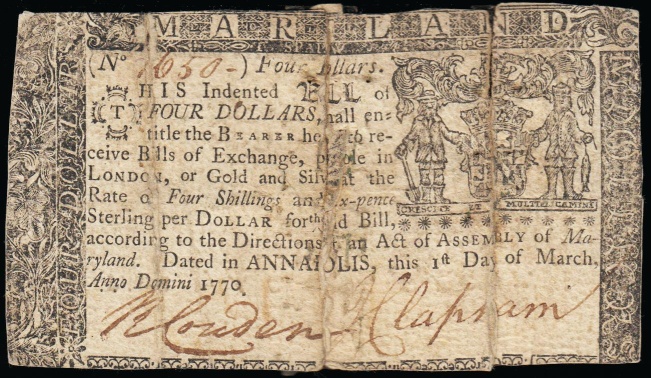 MARYLAND
FOUR DOLLAR
(No 1650-) Four Dollars.
THIS Indented BILL of
FOUR DOLLARS, shall en-
title the BEARER hereof to re-
ceive Bills of Exchange, payable in
LONDON, or Gold and Silver at the
Rate of Four Shillings and Six-pence
Sterling per DOLLAR for the said Bill,
according to the Directions of an Act of ASSEMBLY of Ma-
ryland. Dated in ANNAPOLIS, this 1st Day of March,
Anno Domini 1770.
CRESCITE ET MULTIPLICAMINI
R Couden J Clapham